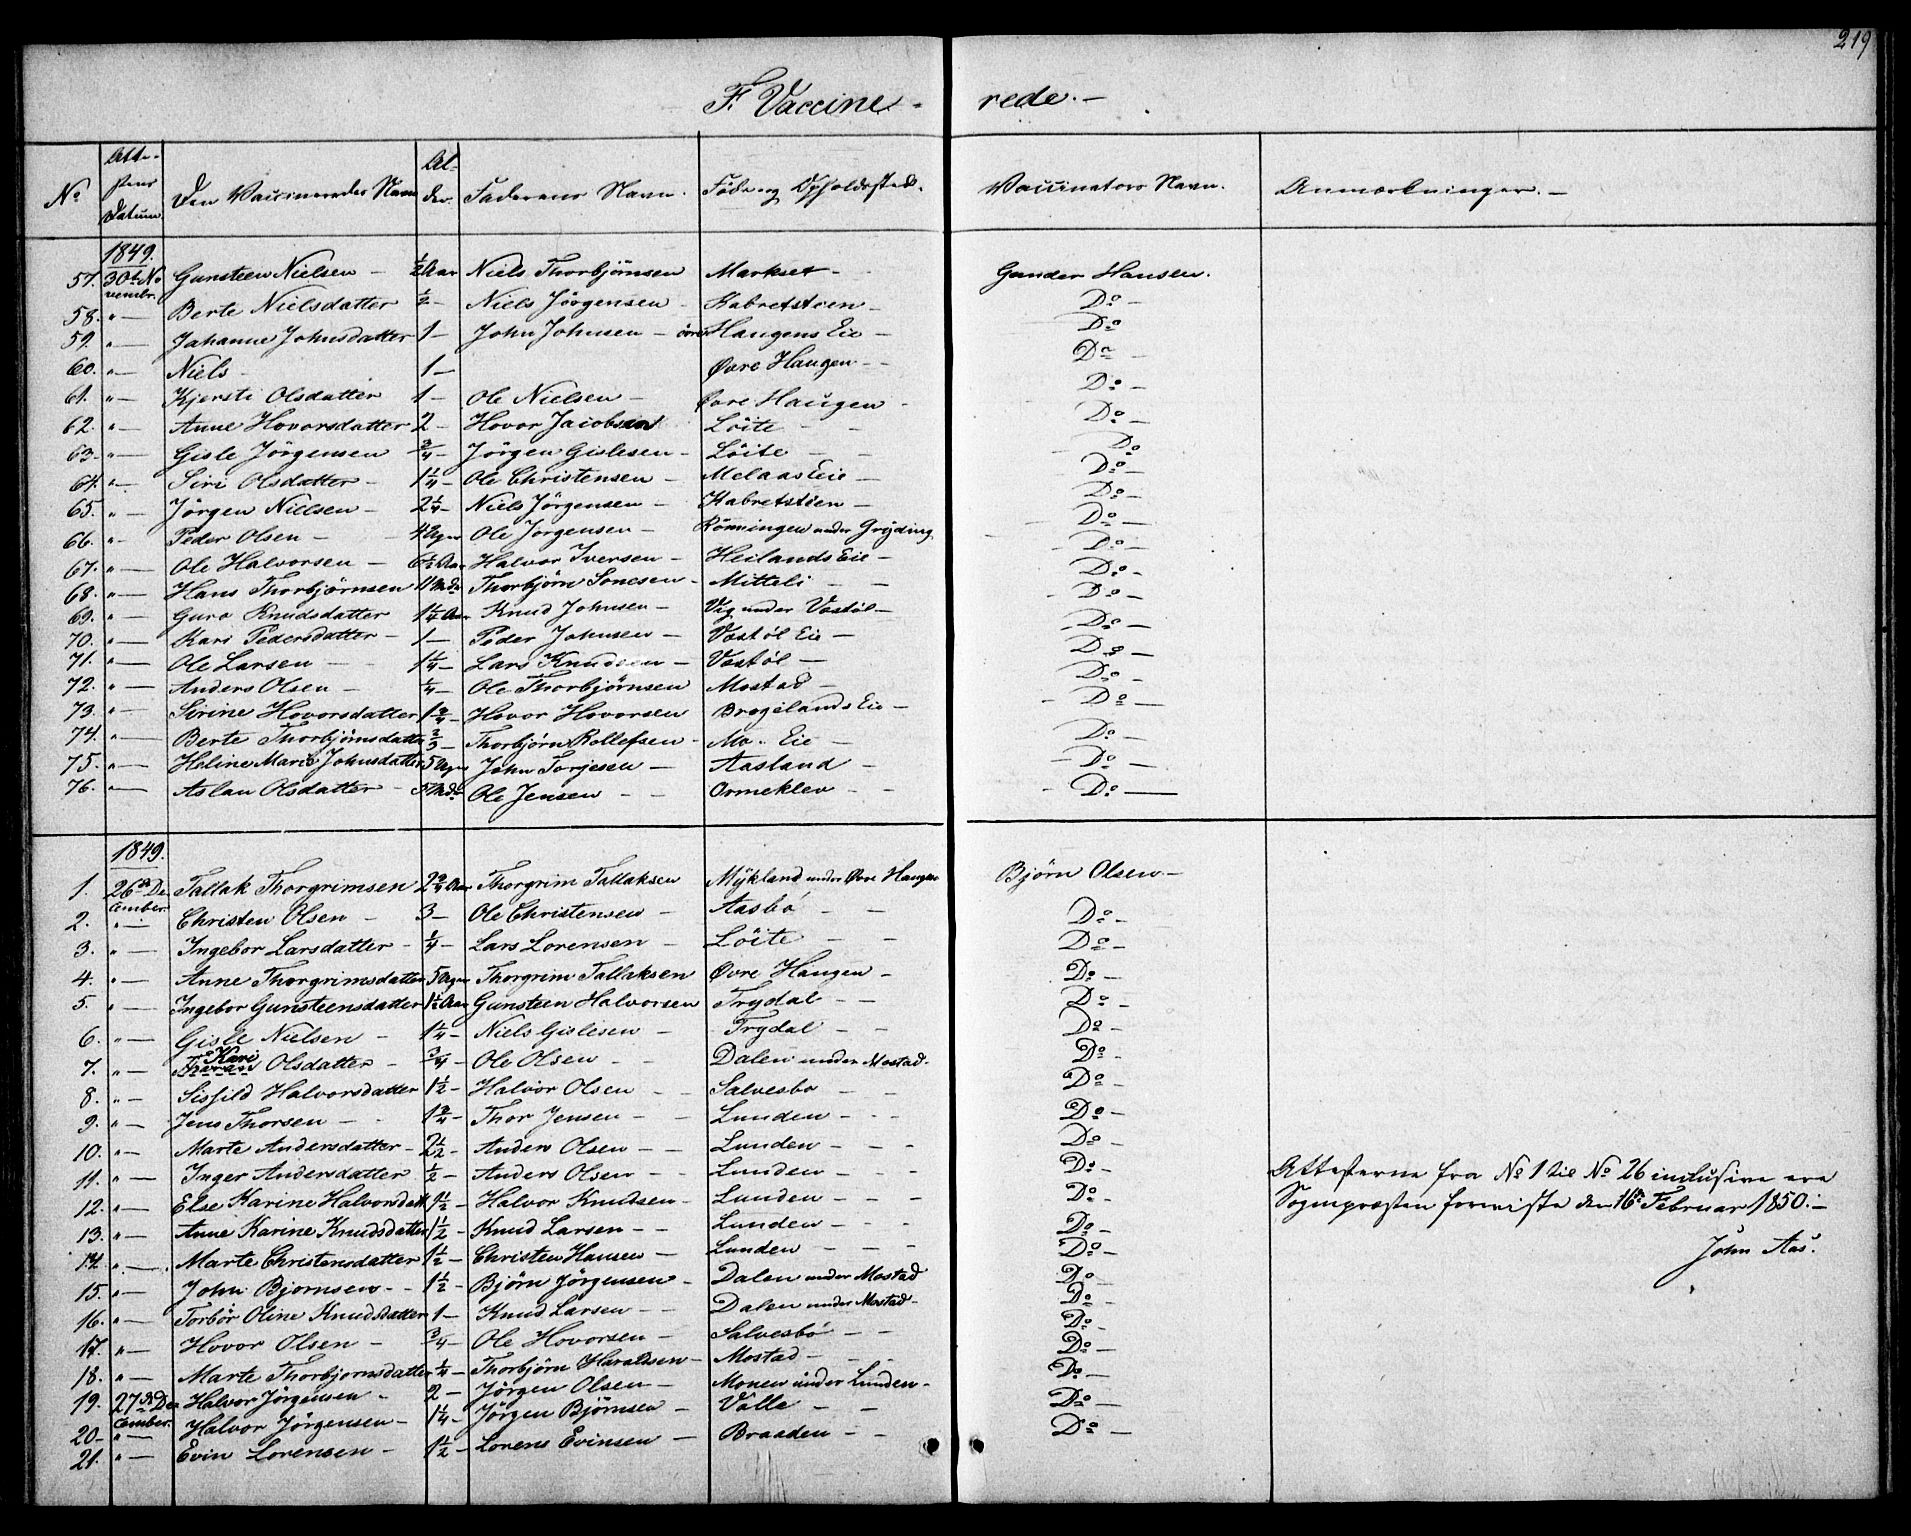 219
F. Vaccine- rede.-
No | Atte-stens Datum | Den Vaccineredes Navn | Al-der. | Faderens Navn. | Føde og Opholdssted. | Vaccinators Navn. | Anmærkninger.-
1849.
57. 30te No vembr. Gunsteen Nielsen - ½ Aar Niels Thorbjørnsen Markset - - Gunder Hansen.
58. " - Berte Nielsdatter ½ - Niels Jörgensen - Kabretstien - Do -
59. " - Johanne Johnsdatter 1 - John Johnsen - övre Haugens Eie - Do
60. " - Niels - 1 - Øvre Haugen - - Do -
61. " - Kjersti Olsdatter 1 - Ole Nielsen - Øvre Haugen - Do -
62. " - Anne Hovorsdatter 2 - Hovor Jacobsen Löite - - Do -
63 - " - Gisle Jörgensen ¾ - Jörgen Gislesen - Löite - - Do
64. " - Siri Olsdatter - 1¼ - Ole Christensen - Melaas Eie - Do -
65. " - Jörgen Nielsen - 2¼ - Niels Jörgensen - Kabretstien - Do -
66. " - Peder Olsen - - 4 Uger Ole Jörgensen - Rönningen under Gryding Do -
67. " - Ole Halvorsen - 6½ Aar Halvor Iversen - Heilands Eie - Do -
68. " - Hans Thorbjörnsen 11 Mdr Thorbjörn Sonesen - Mitteli - - Do -
69. " - Guro Knudsdatter 1¼ Aar Knud Johnsen - Vig under Vastöl - Do -
70. " - Kari Pedersdatter - 1 - Peder Johnsen - Vastöl Eie - Do -
71. " - Ole Larsen - - 1¼ - Lars Knudsen - Vastöl - Do -
72. " - Anders Olsen - ¼ - Ole Thorbjørnsen Mostad - Do -
73. " - Sirine Hovorsdatter 1¾ - Hovor Hovorsen Brogelands Eie - Do -
74. " - Berte Thorbjörnsdatter ⅔ - Thorbjörn Rollefsen - Mo - Eie - Do -
75. " - Heline Marie Johnsdatter 5 Uger John Torjesen - Aasland - Do -
76. " - Aslau Olsdatter - 5 Mdr Ole Jensen - - Ormeklev - - Do -
1849.
1. 26de De cember. Tallak Thorgrimsen 2¾ Aar Thorgrim Tallaksen Mÿkland under Øvre Haugen Bjørn Olsen -
2. " - Christen Olsen - 3 - Ole Christensen - Aasbö - - Do -
3. " - Ingebor Larsdatter - ¼ - Lars Lorensen - Löite - - Do -
4. " - Anne Thorgrimsdatter 5 Uger Thorgrim Tallaksen Øvre Haugen - Do -
5. " - Ingebor Gunsteensdatter 1½ Aar Gunsteen Halvorsen Trydal - - Do -
6. " - Gisle Nielsen - 1¼ - Niels Gislesen - Trydal - - Do -
7. " - Kari Thoran Olsdatter - ¾ - Ole Olsen - - Dalen under Mostad. Do -
8. " - Sissild Halvorsdatter 1½ - Halvor Olsen - - Salvesbo - - Do -
9. " - Jens Thorsen - - 1¾ - Thor Jensen - - Lunden - - - Do -
10. " - Marte Andersdatter - 2½ - Anders Olsen - - Lunden - - - Do -
11. " - Inger Andersdatter ½ - Anders Olsen - Lunden - - - Do - Attesterne fra No 1 til No 26 inclusive ere
12. " - Else Karine Halvorsdatt 1½ - Halvor Knudsen - Lunden - - - Do - Sognepræsten foreviste den 16de Februar 1850.-
13. " - Anne Karine Knudsdatter 1½ - Knud Larsen - - Lunden - - - Do - John Aas.
14. " - Marte Christensdatter 1½ - Christen Hansen - Lunden - - - Do -
15. " - John Bjornsen - - 1½ - Björn Jörgensen - Dalen under Mostad Do -
16. " - Torbör Oline Knudsdatter 1 - Knud Larsen - - Dalen under Mostad - Do -
17. " - Hovor Olsen - ¾ - Ole Hovorsen - Salvesbö - - Do -
18. " - Marte Thorbjornsdatter ¼ - Thorbjörn Haraldsen - Mostad - - - Do -
19. 27de De cember. Halvor Jörgensen - 2 - Jörgen Olsen - Monen under Lunden - Do -
20 - " - Halvor Jörgensen - 1¼ - Jörgen Björnsen - Valle - - Do -
21. " - Evin Lorensen - 1½ - Lorens Evinsen - Braaden - - Do -